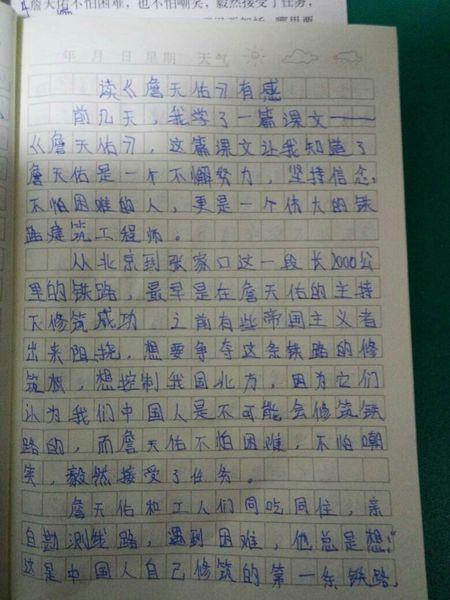 詹天佑不怕困难,也不怕嘲笑,毅然接受了任务,
年 月 日 星期 天气
读《詹天佑》有感
前几天,我学了一篇课文——
《詹天佑》,这篇课文让我知道了
詹天佑是一个不懈努力,坚持信念,
不怕困难的人,更是一个伟大的铁
路建筑工程师。
从北京到张家口这一段长2000公
里的铁路,最早是在詹天佑的主持
下修筑成功.之前有些帝国主义者
出来阻挠,想要争夺这条铁路的修
筑权,想控制我国北方,因为它们
认为我们中国人是不可能会修筑铁
路的,而詹天佑不怕困难,不怕嘲
笑,毅然接受了任务。
詹天佑和工人们同吃同住,亲
自勘测线路,遇到困难,他总是想:“
这是中国人自己修筑的第一条铁路,